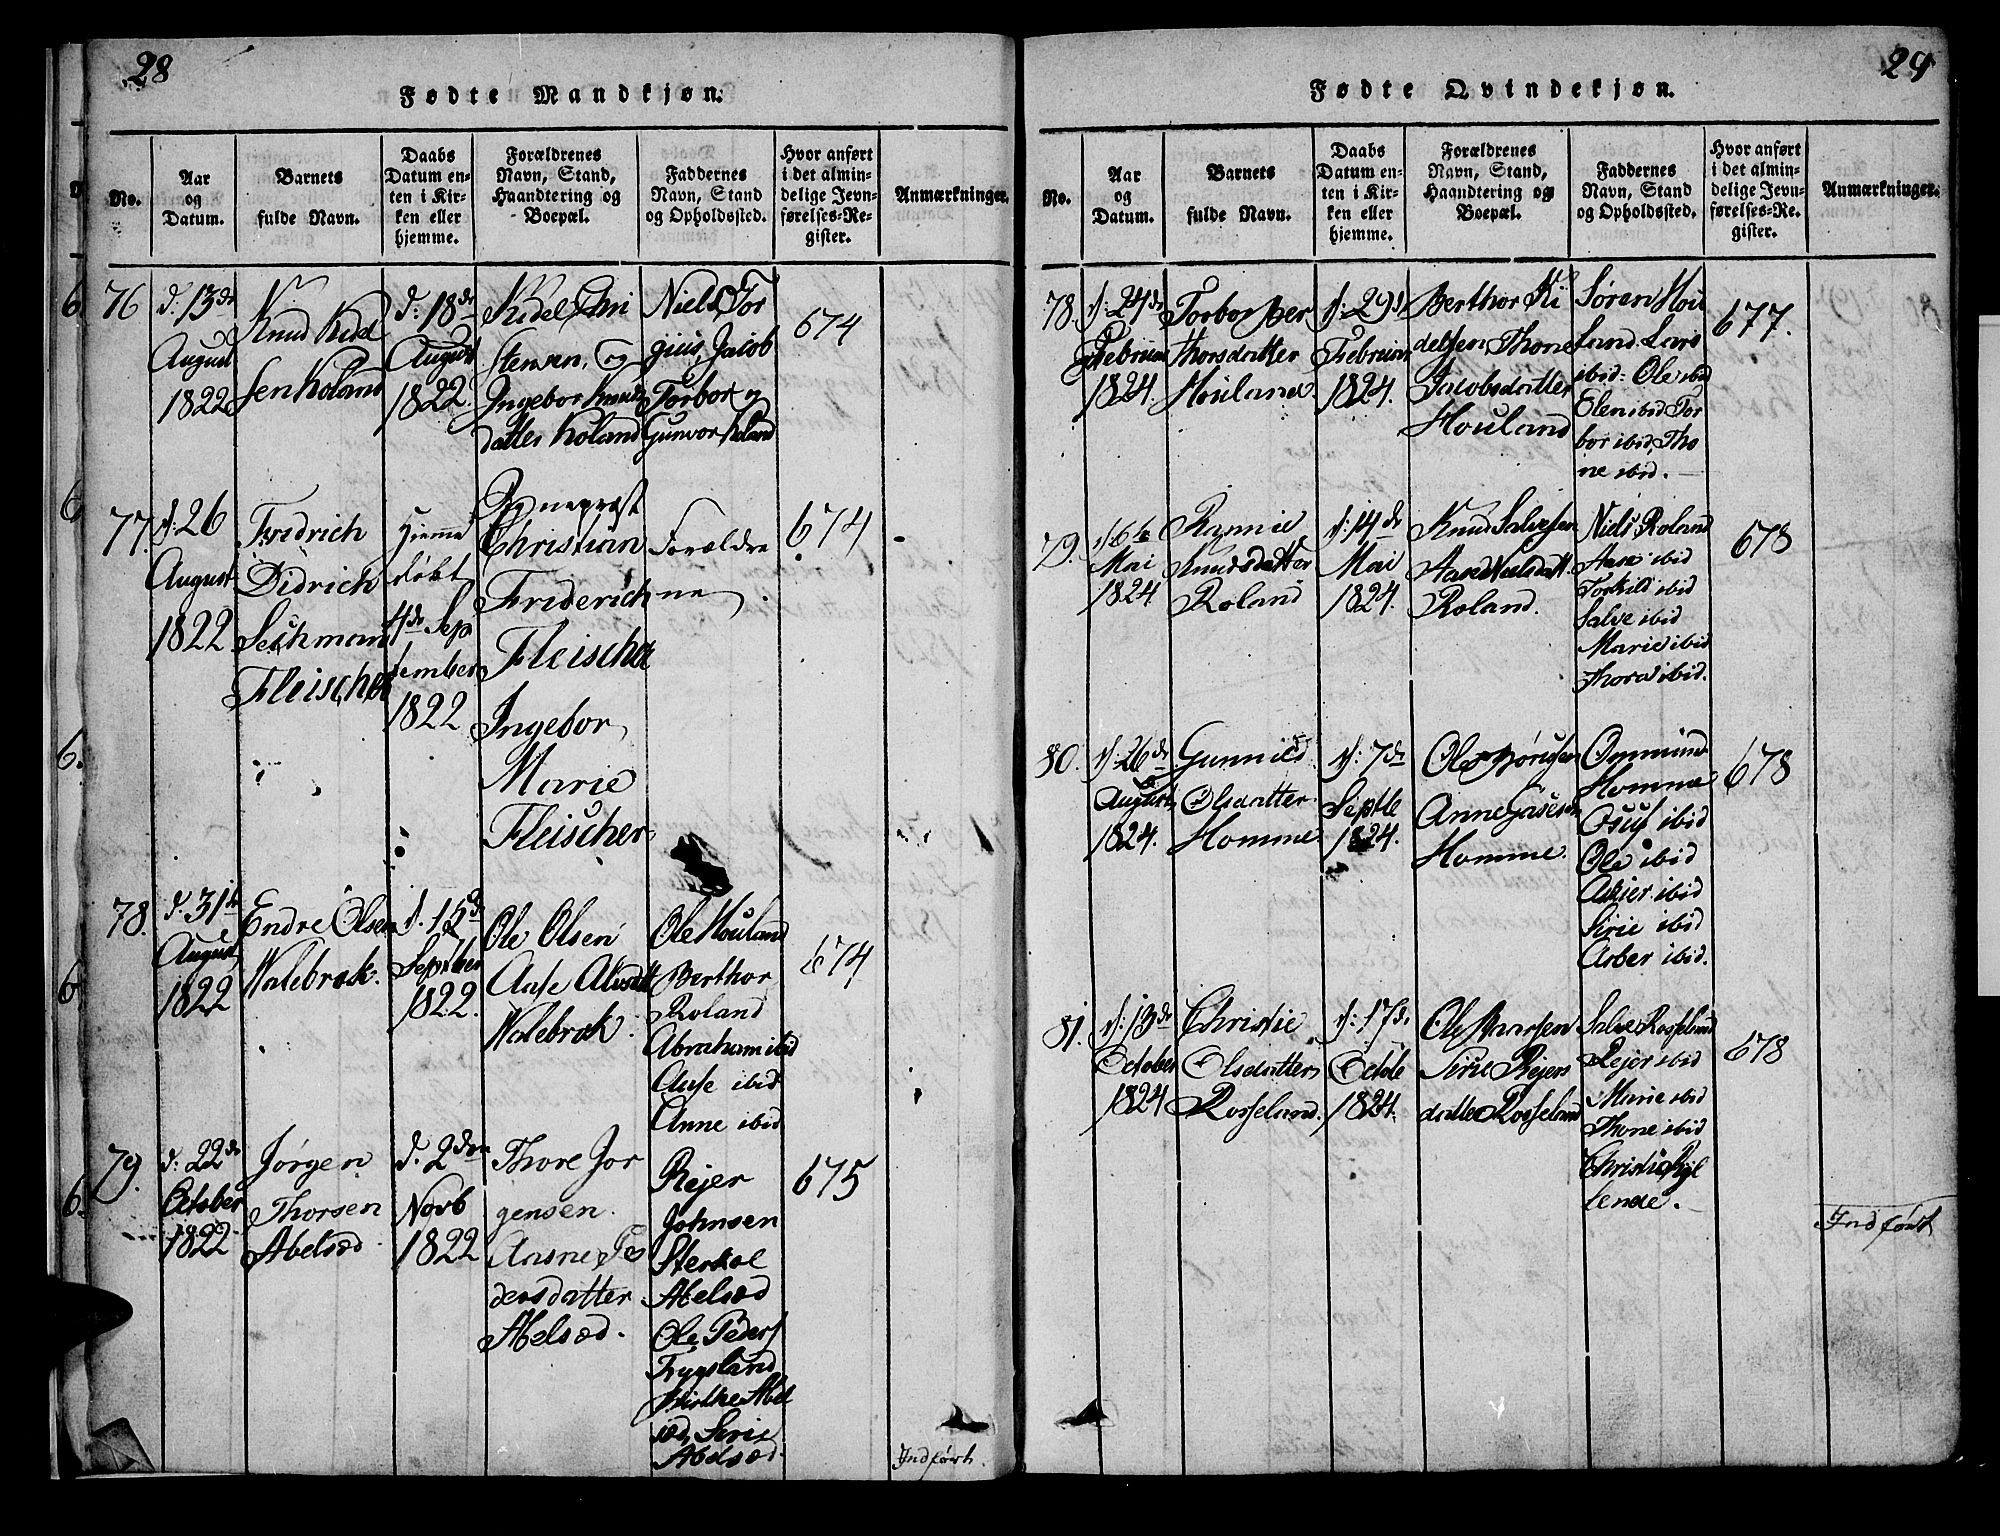 28
Fødte Mandkjøn.
No.
Aar
og
Datum.
Barnets
fulde Navn.
Daabs
Datum en-
ten i Kir-
ken eller
hjemme.
Forældrenes
Navn, Stand,
Haandtering og
Boepæl.
Faddernes
Navn, Stand
og Opholdssted.
Hvor anført
i det almin-
delige Jevn-
førelses-Re-
gister.
Anmærkninger.
76
d. 13de
August
1822
Knud Kidel
sen Roland
d: 18de
August
1822.
Kidel Chri
stensen, og
Ingebor Knuds
datter Roland
Niels, Tor
giius, Jacob
Torbor og
Gunvor Roland
674
77.
d: 26
August
1822
Fridrich
Didrich
Sechmann
Fleischer
Hiemme
døbt
4de Sep
tember
1822
Christian
Friderich
Fleischer
Ingebor
Marie
Fleischer
Forældre
ne
674
78.
d. 31te
August
1822
Endre Olsen
Walebrok.
d. 15de
Septber
1822.
Ole Olsen
Aase
Walebrok
Ole Houland
Berthor
Roland
Abraham ibid
Aase ibid
Anne ibid
674
79.
d: 22de
October
1822
Jørgen
Thorsen
Abelsæd
d. 2den
Novb
1822
Thore Jor
gensen.
Pe
dersdatter
Abelsæd.
Rejer
Johnsen
Abelsæd
Ole Peders
Abel
sæd, Serie
Abelsæd.
675
Indført.
29
Fødte Qvindekjøn.
No.
Aar
og
Datum.
Barnets
fulde Navn.
Daabs
Datum en-
ten i Kir-
ken eller
hjemme.
Forældrenes
Navn, Stand,
Haandtering og
Boepæl.
Faddernes
Navn, Stand
og Opholdssted.
Hvor anført
i det almin-
delige Jevn-
førelses-Re-
gister.
Anmærkninger.
78.
d: 24de
Februar
1824.
Torbor Ber
thorsdatter
Houland.
d: 29de
Februar
1824.
Berthor Ki
delsen Thone
Jacobsdatter
Houland
Søren Hou
land. Lars
ibid: Ole ibid
Elen ibid Tor
bor ibid, Tho
ne ibid.
677.
79.
d 6te
Mai
1824
Knudsdatter
Roland
d: 14de
Mai
1824.
Knud Salvesen
Roland.
Niels Roland
Aase ibid
Torkild ibid
Salve ibid
Marie ibid
Thora ibid.
678
80.
d: 26de
August
1824.
Gunnild
Olsdatter
Homme
d: 7de
Septbe
1824.
Ole
Anne
Homme.
Ommund
Homme
Osuf ibid
Ole ibid
ibid
Sirie ibid
Asber ibid.
678
81.
d: 13de
October
1824
Christie
Olsdatter
Rosseland.
d: 17de
Octbe
1824.
Ole Aarsen
Sirie Rejers
datter Rosseland
Salve Rosseland
Rejer ibid
Marie ibid
Thone ibid
Christie
678
Indført